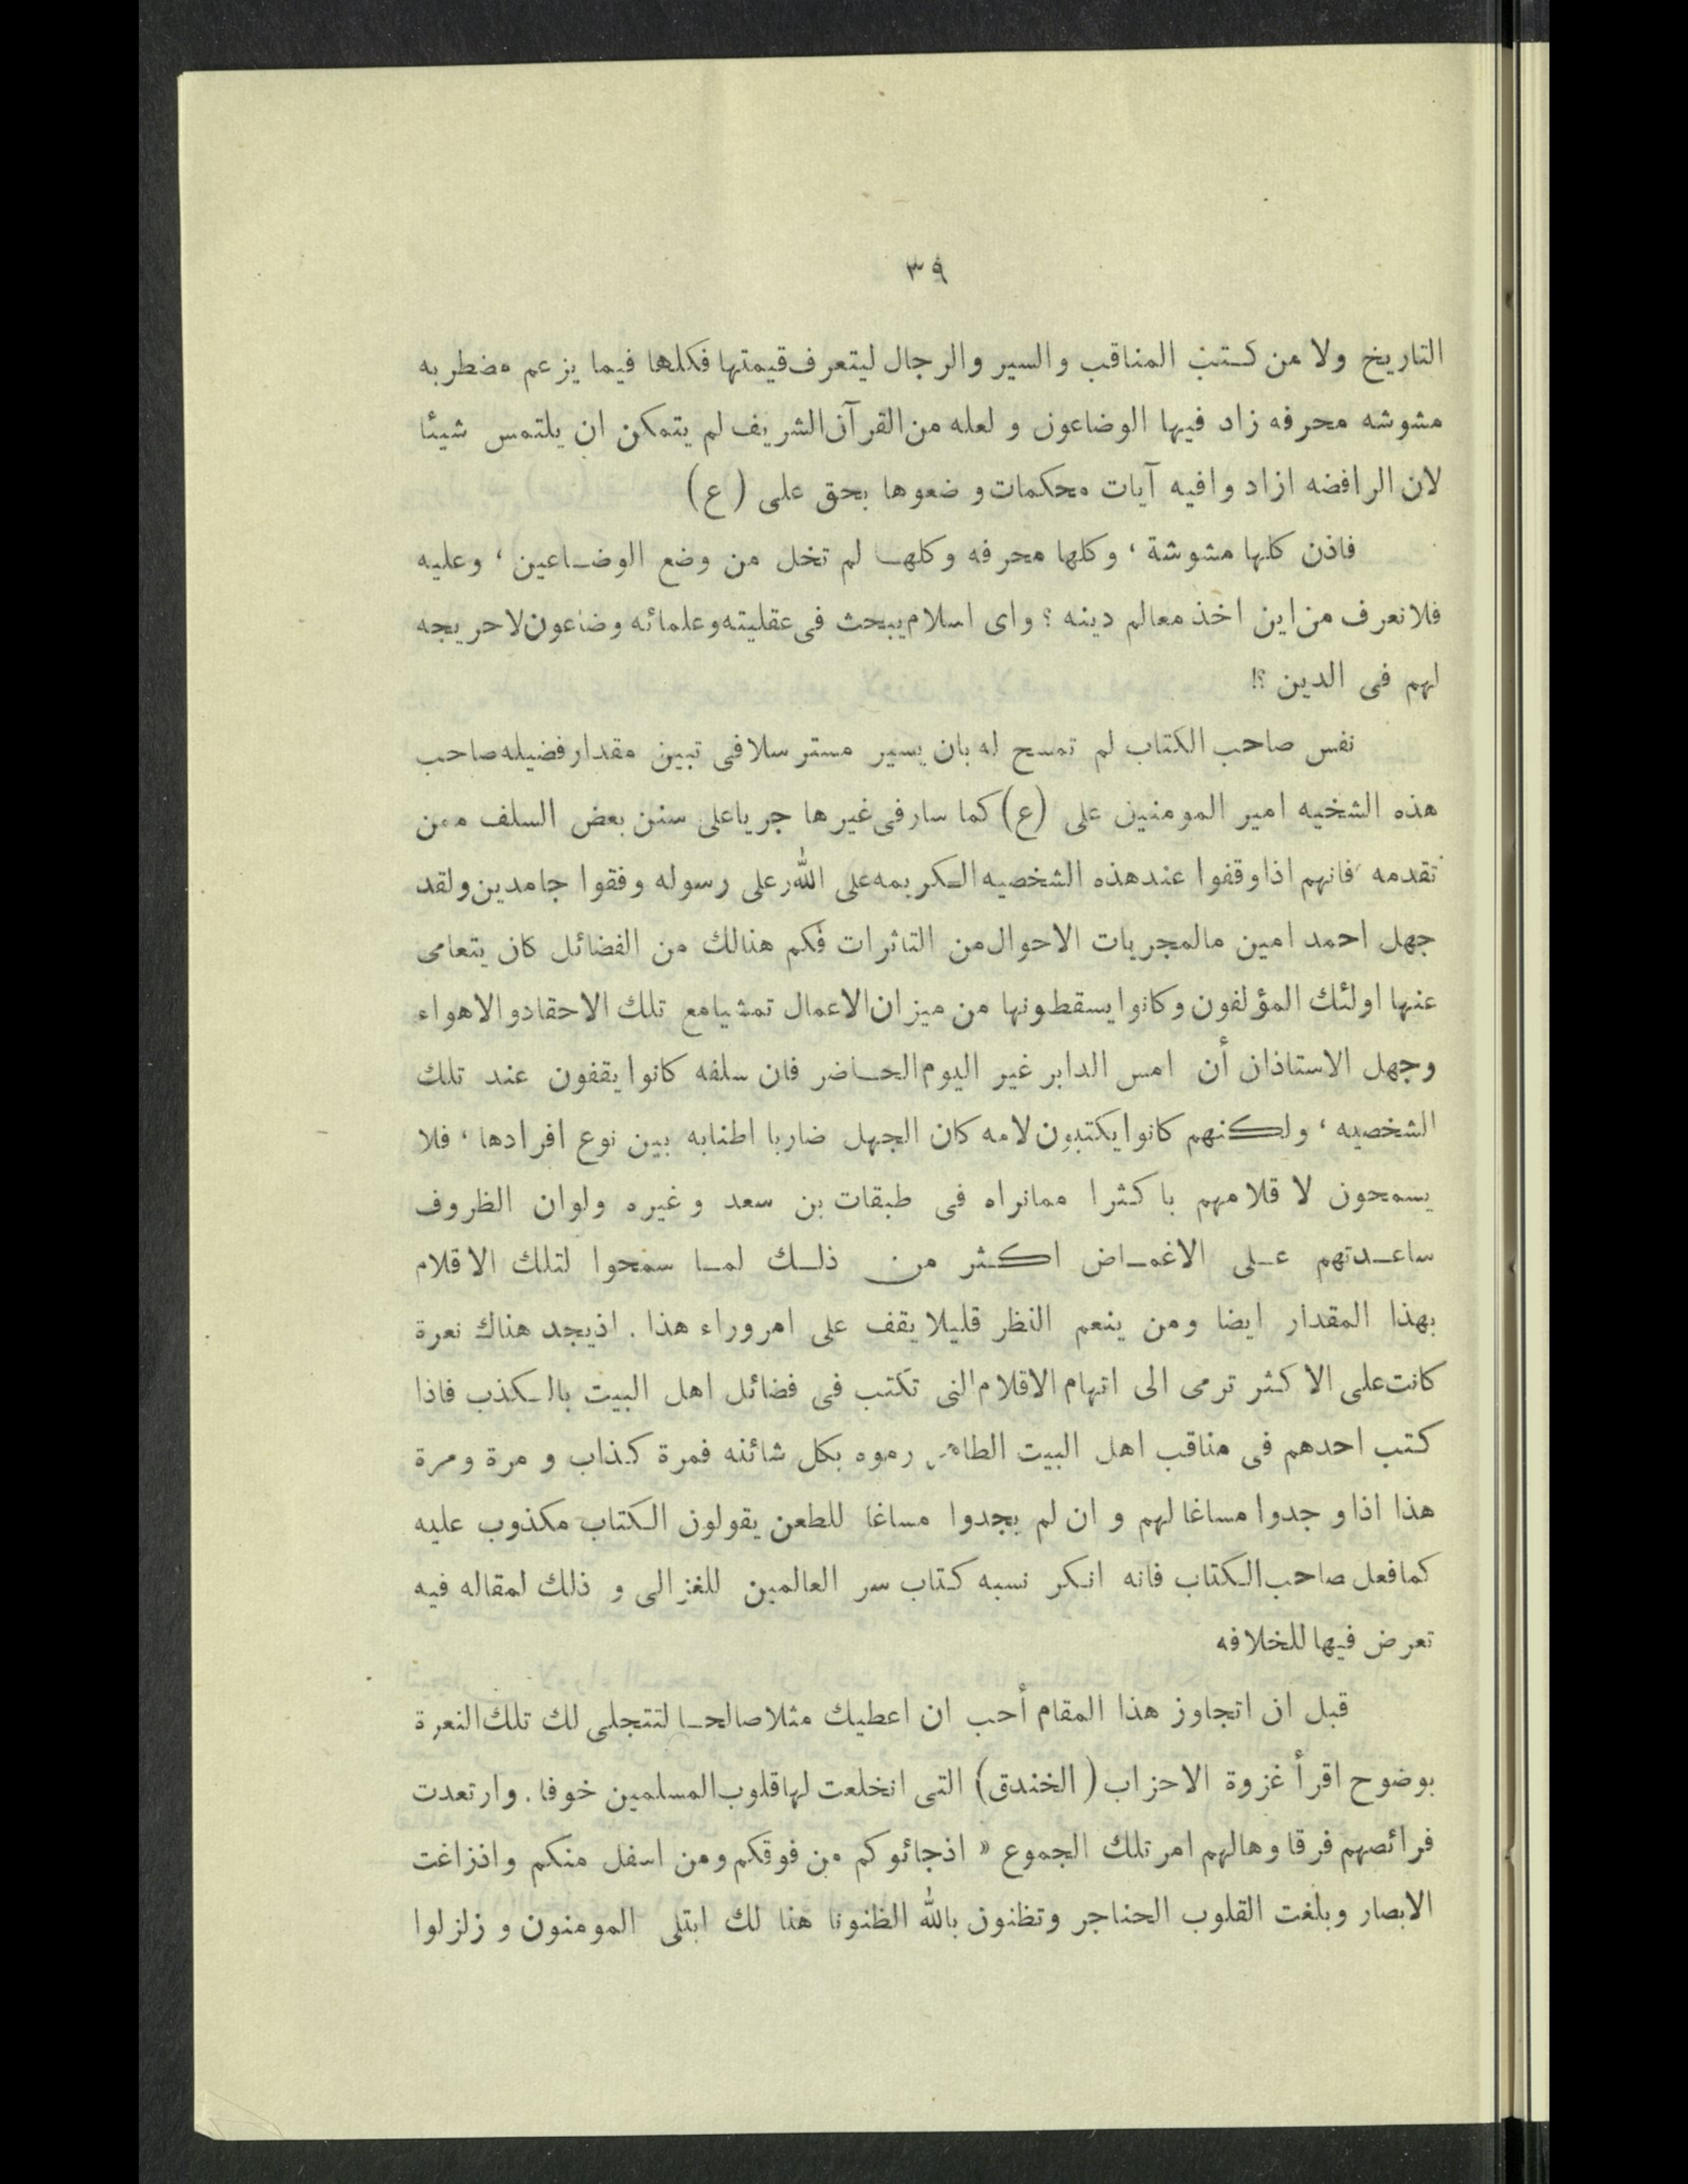 ٣٩
التاريخ ولا من كتب المناقب والسير والرجال ليتعرف قيمتها فكلها فيما يزعم مضطربه
مشوشه محرفه زاد فيها الوضاعون و لعله من القرآن الشريف لم يتمكن ان يلتمس شيئا
لان الرافضه ازاد وافيه آيات محكمات و ضعوها بحق على (ع)
فاذن كلها مشوشة ، وكلها محرفه وكلها لم تخل من وضع الوضاعين ، وعليه
فلا نعرف من اين اخذ معالم دينه ؟ واى اسلام يبحث فى عقليته وعلمائه وضاعون لا حريجه
لهم فى الدين ؟!
نفس صاحب الكتاب لم تمسح له بان يسير مسترسلا فى تبين مقدار فضيله صاحب
هذه الشخيه امير المومنين على (ع) كما سار فى غيرها جريا على سنن بعض السلف ممن
تقدمه فانهم اذا وقفوا عند هذه الشخصيه الكريمه على الله وعلى رسوله وفقوا جامدين ولقد
جهل احمد امين مالمجريات الاحوال من التاثرات فكم هنالك من الفضائل كان يتعامى
عنها اولئك المؤلفون وكانوا يسقطونها من ميزان الاعمال تمشيا مع تلك الاحقاد والاهواء
وجهل الاستاذان أن امس الدابر غير اليوم الحاضر فان سلفه كانوا يقفون عند تلك
الشخصيه ، ولكنهم كانوا يكتبون لامه كان الجهل ضاربا اطنابه بين نوع افرادها ، فلا
يسمحون لا قلامهم باكثرا ممانراه فى طبقات بن سعد و غيره ولوان الظروف
ساعدتهم على الاغماض اكثر من ذلك لما سمحوا لتلك الاقلام
بهذا المقدار ايضا ومن ينعم النظر قليلا يقف على امر وراء هذا . اذ يجد هناك نعرة
كانت على الاكثر ترمى الى اتهام الاقلام التى تكتب فى فضائل اهل البيت بالكذب فاذا
كتب احدهم فى مناقب اهل البيت الطاهر رموه بكل شائنه فمرة كذاب و مرة ومرة
هذا اذا و جدوا مساغا لهم و ان لم يجدوا مساغا للطعن يقولون الكتاب مكذوب عليه
كما فعل صاحب الكتاب فانه انكر نسبه كتاب سر العالمين للغزالى و ذلك لمقاله فيه
تعرض فيها للخلافه
قبل ان اتجاوز هذا المقام أحب ان اعطيك مثلا صالحا لتتجلى لك تلك النعرة
بوضوح اقرأ غزوة الاحزاب ( الخندق) التى انخلعت لها قلوب المسلمين خوفا . وارتعدت
فرائصهم فرقا وهالهم امر تلك الجموع « اذجائوكم من فوقكم ومن اسفل منكم واذ زاغت
الابصار وبلغت القلوب الحناجر وتظنون بالله الظنونا هنا لك ابتلى المومنون و زلزلوا